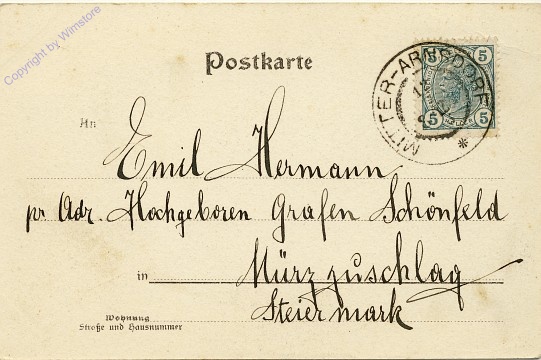 Copyright by Wimstore
Postkarte
MITTER-ARNSDORF
5 5
5 5
An
Emil Hermann
pr Adr. Hochgeboren Grafen Schönfeld
in Mürzzuschlag
Steiermark
Wohnung
Straße und Hausnummer